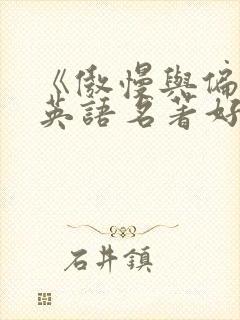 《傲慢與偏
英語名著好
石井鎮